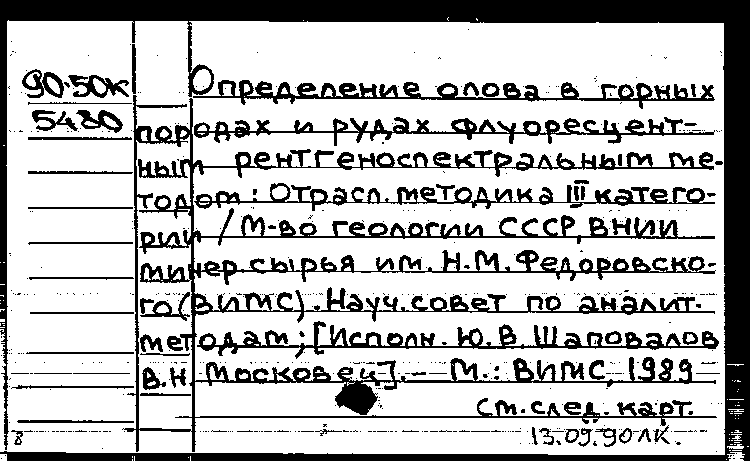 90-50к
5480
Определение олова в горных
породах и рудах флуоресцент-
ным рентгеноспектральным ме-
тодом: Отрасл. методика III катего-
рии / М-во геологии СССР, ВНИИ
минер. сырья им. Н.М. Федоровско-
го (ВИМС). Науч. совет по аналит.
методам; [Исполн. Ю.В. Шаповалов
В.Н. Московец]. - М.: ВИМС, 1989
См. след. карт.
8 13.09.90 ЛК.